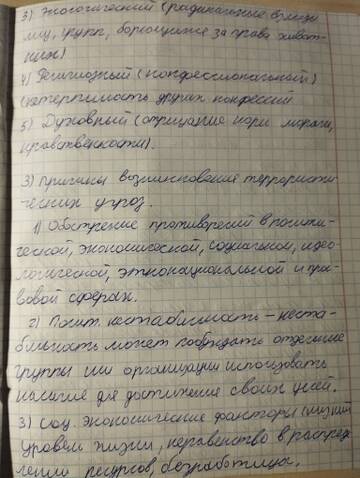 3) Экологический (радикальные взгляды
лиц, групп, борющихся за права живот-
ных)
4) Религиозный (конфессиональный)
(нетерпимость других конфессий
5) Духовный (отрицание норм морали,
нравственности).
3) Причины возникновение террористи-
ческих угроз.
1) Обострение противоречий в полити-
ческой, экономической, социальной, идео-
логической, этнонациональной и пра-
вовой сферах.
2) Полит. нестабильность - неста-
бильность может побуждать отдельные
группы или организации использовать
насилие для достижения своих целей.
3) Соц. экономические факторы (низкий
уровень жизни, неравенство в распреде-
лении ресурсов, безработица.